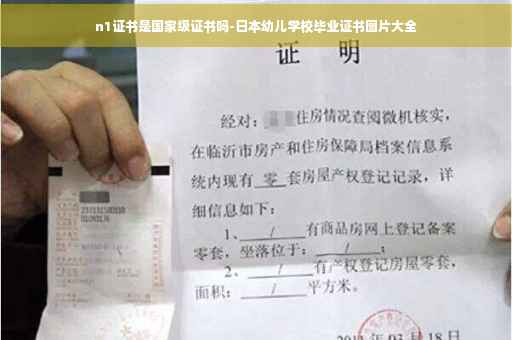 n1证书是国家级证书吗-日本幼儿学校毕业证书图片大全
证 明
经对：住房情况查阅微机核实，
在临沂市房产和住房保障局档案信息系
统内现有 零 套房屋产权登记记录，详
细信息如下：
1、 / 有商品房网上登记备案
零套，坐落位于： / ；
2、 / 有产权登记房屋零套，
面积： / 平方米。
03 月 18 日